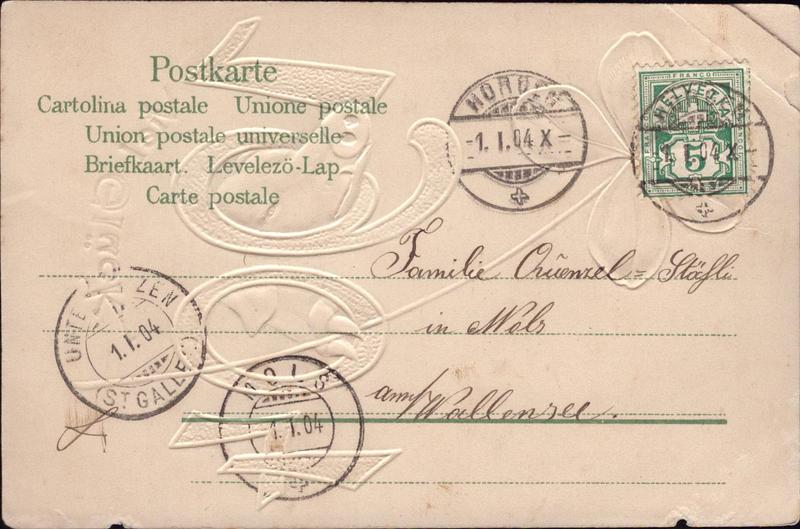 Postkarte
Cartolina postale Unione postale
Union postale universelle
Briefkaart. Levelezö-Lap
Carte postale
HORGEN
-1. I. 04 X-
FRANCO
HELVETIA
5
1. I. 04 X
Familie Quenzel = Stähli
in Mols
am Wallensee.
UNTE ZEN
1. I. 04
(ST GALL
MOLS
1. I. 04